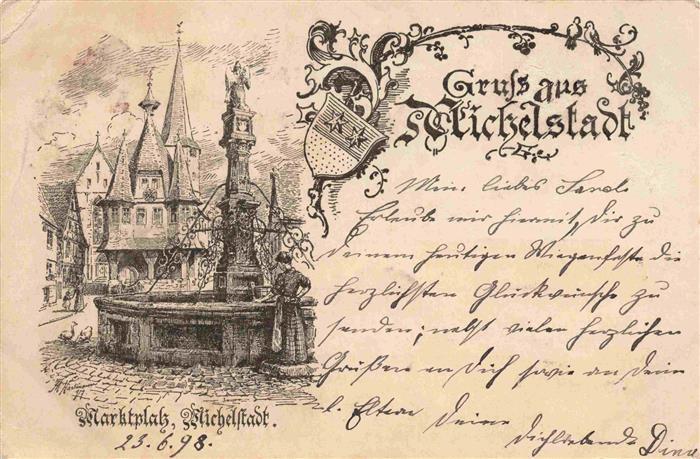 Gruss aus
Michelstadt
Mein liebes
Erlaube mir hiermit, Dir zu
Deinem heutigen Wiegenfeste die
herzlichsten Glückwünsche zu
senden; nebst vielen herzlichen
Grüßen an Dich sowie an Deine
l. Eltern Deine
Dichliebende Dina
Marktplatz, Michelstadt.
23.6.98.